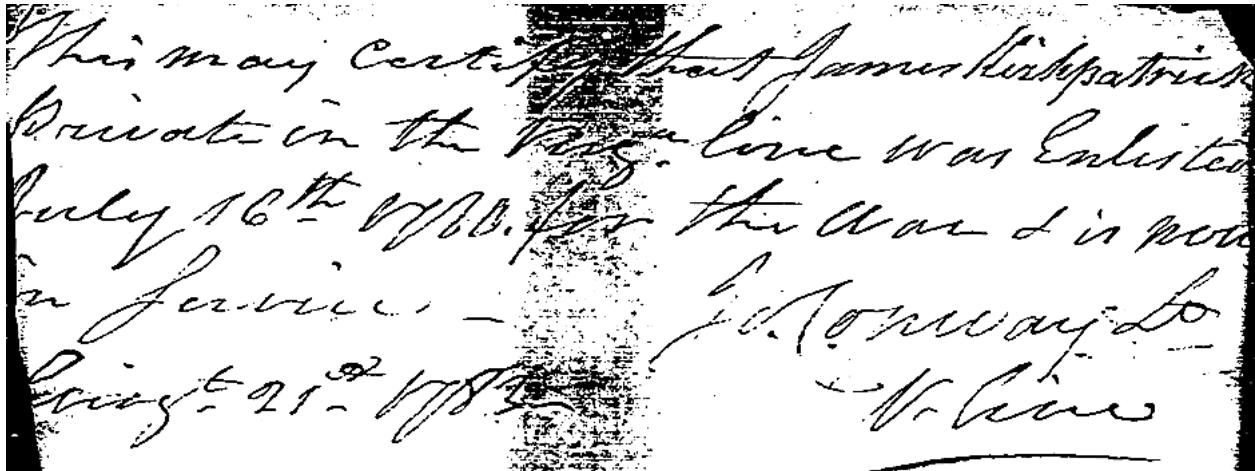 This may Certify that James Kirkpatrick
Private in the Virga. line was Enlisted
July 16th 1780. for the War & is now
in Service —
Jo. Conway Lt
21st 1783
V. Line